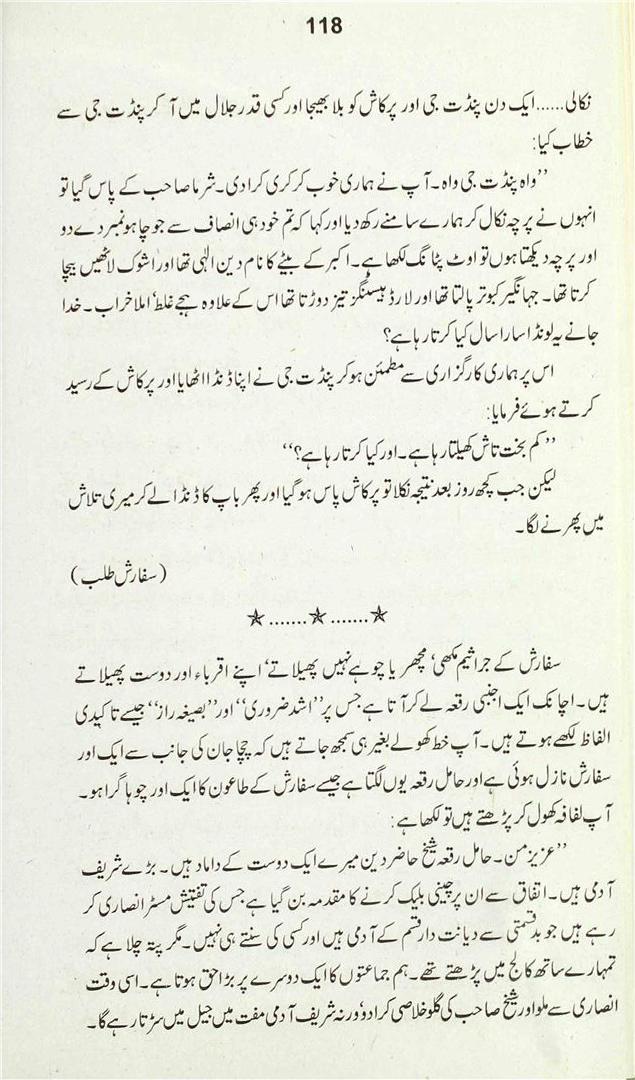 118
نکالی......ایک دن پنڈت جی اور پرکاش کو بلا بھیجا اور کسی قدر جلال میں آ کر پنڈت جی سے
خطاب کیا:
”واہ پنڈت جی واہ۔ آپ نے ہماری خوب کرکری کرا دی۔ شرما صاحب کے پاس گیا تو
انہوں نے پرچہ نکال کر ہمارے سامنے رکھ دیا اور کہا کہ تم خود ہی انصاف سے جو چاہو نمبر دے دو
اور پرچہ دیکھتا ہوں تو اوٹ پٹانگ لکھا ہے۔ اکبر کے بیٹے کا نام دین الٰہی تھا اور اشوک لاٹھیں بیچا
کرتا تھا۔ جہانگیر کبوتر پالتا تھا اور لارڈ ہیسٹنگز تیز دوڑتا تھا اس کے علاوہ ہجے غلط‘ املا خراب۔ خدا
جانے یہ لونڈا سارا سال کیا کرتا رہا ہے؟
اس پر ہماری کارگزاری سے مطمئن ہو کر پنڈت جی نے اپنا ڈنڈا اٹھایا اور پرکاش کے رسید
کرتے ہوئے فرمایا:
”کم بخت تاش کھیلتا رہا ہے۔ اور کیا کرتا رہا ہے؟“
لیکن جب کچھ روز بعد نتیجہ نکلا تو پرکاش پاس ہو گیا اور پھر باپ کا ڈنڈا لے کر میری تلاش
میں پھرنے لگا۔
(سفارش طلب)
✯.......✯.......✯
سفارش کے جراثیم مکھی‘ مچھر یا چوہے نہیں پھیلاتے‘ اپنے اقرباء اور دوست پھیلاتے
ہیں۔ اچانک ایک اجنبی رقعہ لے کر آتا ہے جس پر ”اشد ضروری“ اور ”بصیغہ راز“ جیسے تاکیدی
الفاظ لکھے ہوتے ہیں۔ آپ خط کھولے بغیر ہی سمجھ جاتے ہیں کہ چچا جان کی جانب سے ایک اور
سفارش نازل ہوئی ہے اور حامل رقعہ یوں لگتا ہے جیسے سفارش کے طاعون کا ایک اور چوہا گرا ہو۔
آپ لفافہ کھول کر پڑھتے ہیں تو لکھا ہے:
”عزیز من۔ حامل رقعہ شیخ حاضر دین میرے ایک دوست کے داماد ہیں۔ بڑے شریف
آدمی ہیں۔ اتفاق سے ان پر چینی بلیک کرنے کا مقدمہ بن گیا ہے جس کی تفتیش مسٹر انصاری کر
رہے ہیں جو بدقسمتی سے دیانت دار قسم کے آدمی ہیں اور کسی کی سنتے ہی نہیں۔ مگر پتہ چلا ہے کہ
تمہارے ساتھ کالج میں پڑھتے تھے۔ ہم جماعتوں کا ایک دوسرے پر بڑا حق ہوتا ہے۔ اسی وقت
انصاری سے ملو اور شیخ صاحب کی گلو خلاصی کرا دو‘ ورنہ شریف آدمی مفت میں جیل میں سڑتا رہے گا۔